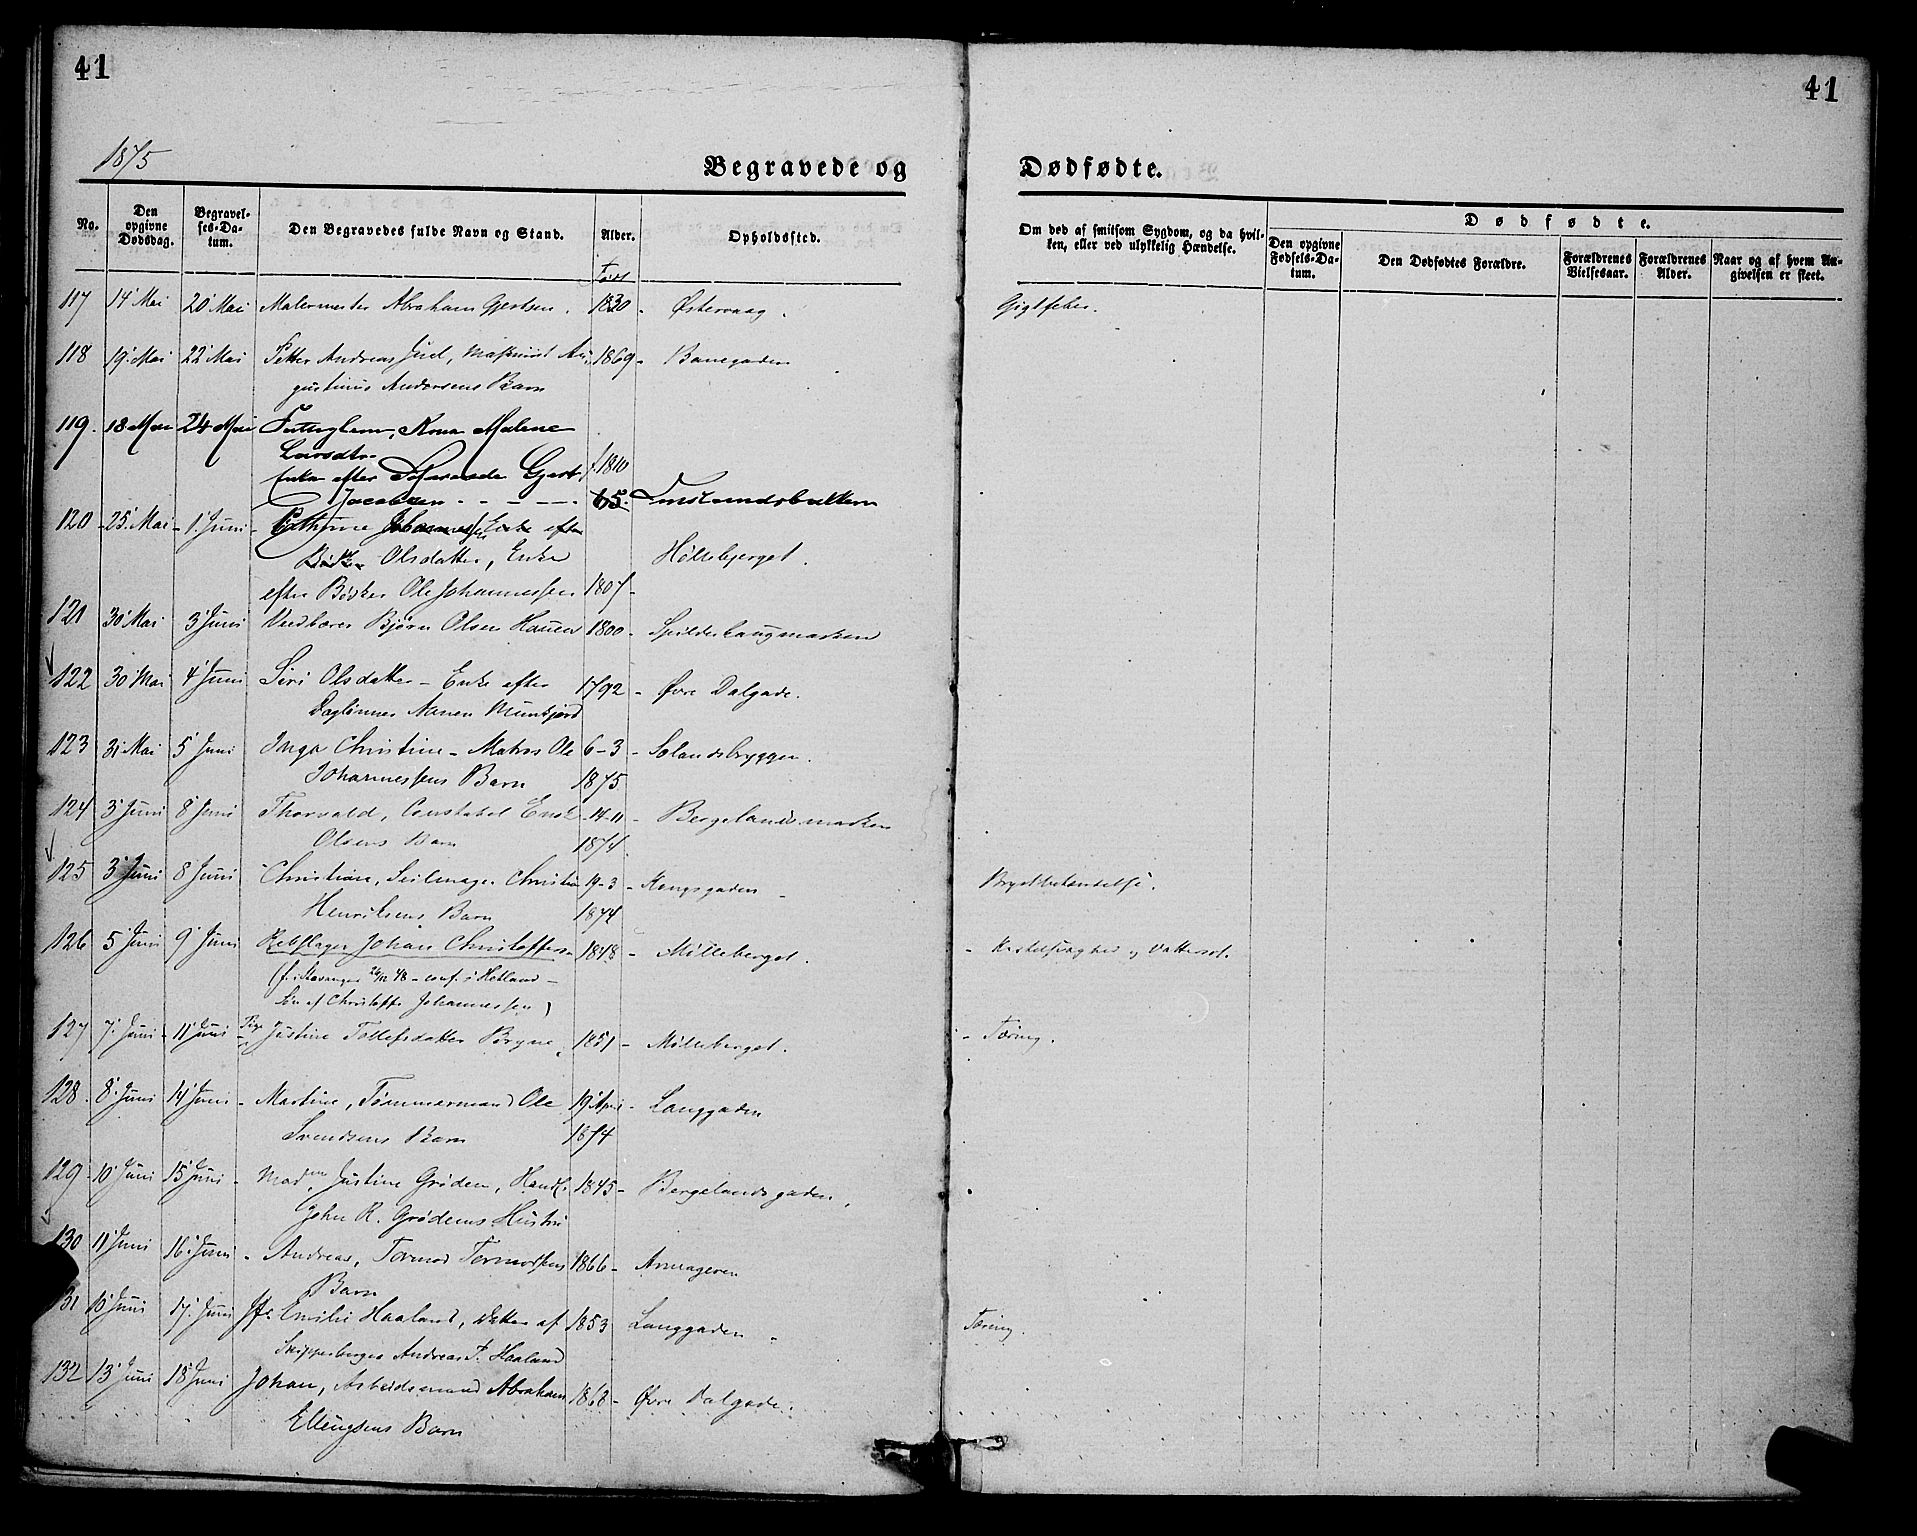 41
41
1875
Begravede og
Dødfødte.
No.
Den opgivne Dødsdag.
Begravelses-Datum.
Den Begravedes fulde Navn og Stand.
Alder.
Opholdssted.
Om død af smitsom Sygdom, og da hvilken, eller ved ulykkelig Hændelse.
Dødfødte.
Den opgivne Fødsels-Datum.
Den Dødfødtes Forældre.
Forældrenes Vielsesaar.
Forældrenes Alder.
Naar og af hvem Angivelsen er skeet.
Født
117 14' Mai 20' Mai Malermester Abraham Gjertsen. 1830 - Østervaag. Gigtfeber.
118 19' Mai 22' Mai Petter Andreas Juel, Maskinist Au- 1869 - Banegaden
gustinus Andersens Barn
119. 18 Mai 24 Mai Fattiglem, Kona Malene
Larsdtr
Enke efter Gjert f. 1810
Jacobsen - - - - 65.
120 - 25' Mai - 1' Juni - Enke efter
Olsdatter, Enke Høllebjerget.
efter Bødker Ole Johannessen 1807 -
121 30' Mai 3' Juni Vedbærer Bjørn Olsen Hauen 1800 - Spilderhaugmarken
122 30' Mai 4' Juni Siri Olsdatter - Enke efter 1792 - Øvre Dalgade.
Daglønner Aanen Munkjord
123 31' Mai 5' Juni Inga Christine - Matros Ole 6-3 - Solandsbryggen.
Johannessens Barn 1875
124 3' Juni 8' Juni Thorvald, Constabel Enok -14-11 - Bergelandsmarken
Olsens Barn 1874
125 3' Juni 8' Juni Christiane, Seilmager Christian 19-3 - Kongsgaden - Brystbetændelse.
Henriksens Barn 1874
126 5' Juni 9' Juni Rebslager Johan Christoffers. 1848 - Mølleberget. - Hjertesvaghed og Vattersot.
(f. i Stavanger 26/12 48 - conf. i Hetland -
Søn af Christoffer Johannessen)
127 7' Juni 11' Juni Pige Justine Tollefsdatter Bryne 1851 - Mølleberget. - Tæring.
128. 8' Juni 14' Juni - Martine, Tømmermand Ole 19' April - Langgaden
Svendsens Barn 1874
129 - 10' Juni 15' Juni - Madm Justine Grøden, Handl. 1845 - Bergelandsgaden,
John R. Grødens Hustru
130 11' Juni 16' Juni - Andreas, Tormod Tormodsens 1866 - Arneageren
Barn
131 10' Juni 17' Juni Jfr. Emilie Haaland, Datter af 1853 Langgaden - Tæring.
Skipperborger Andreas T. Haaland
132 13' Juni 18' Juni Johan, Arbeidsmand Abraham 1868 - Øvre Dalgade.
Ellingsens Barn